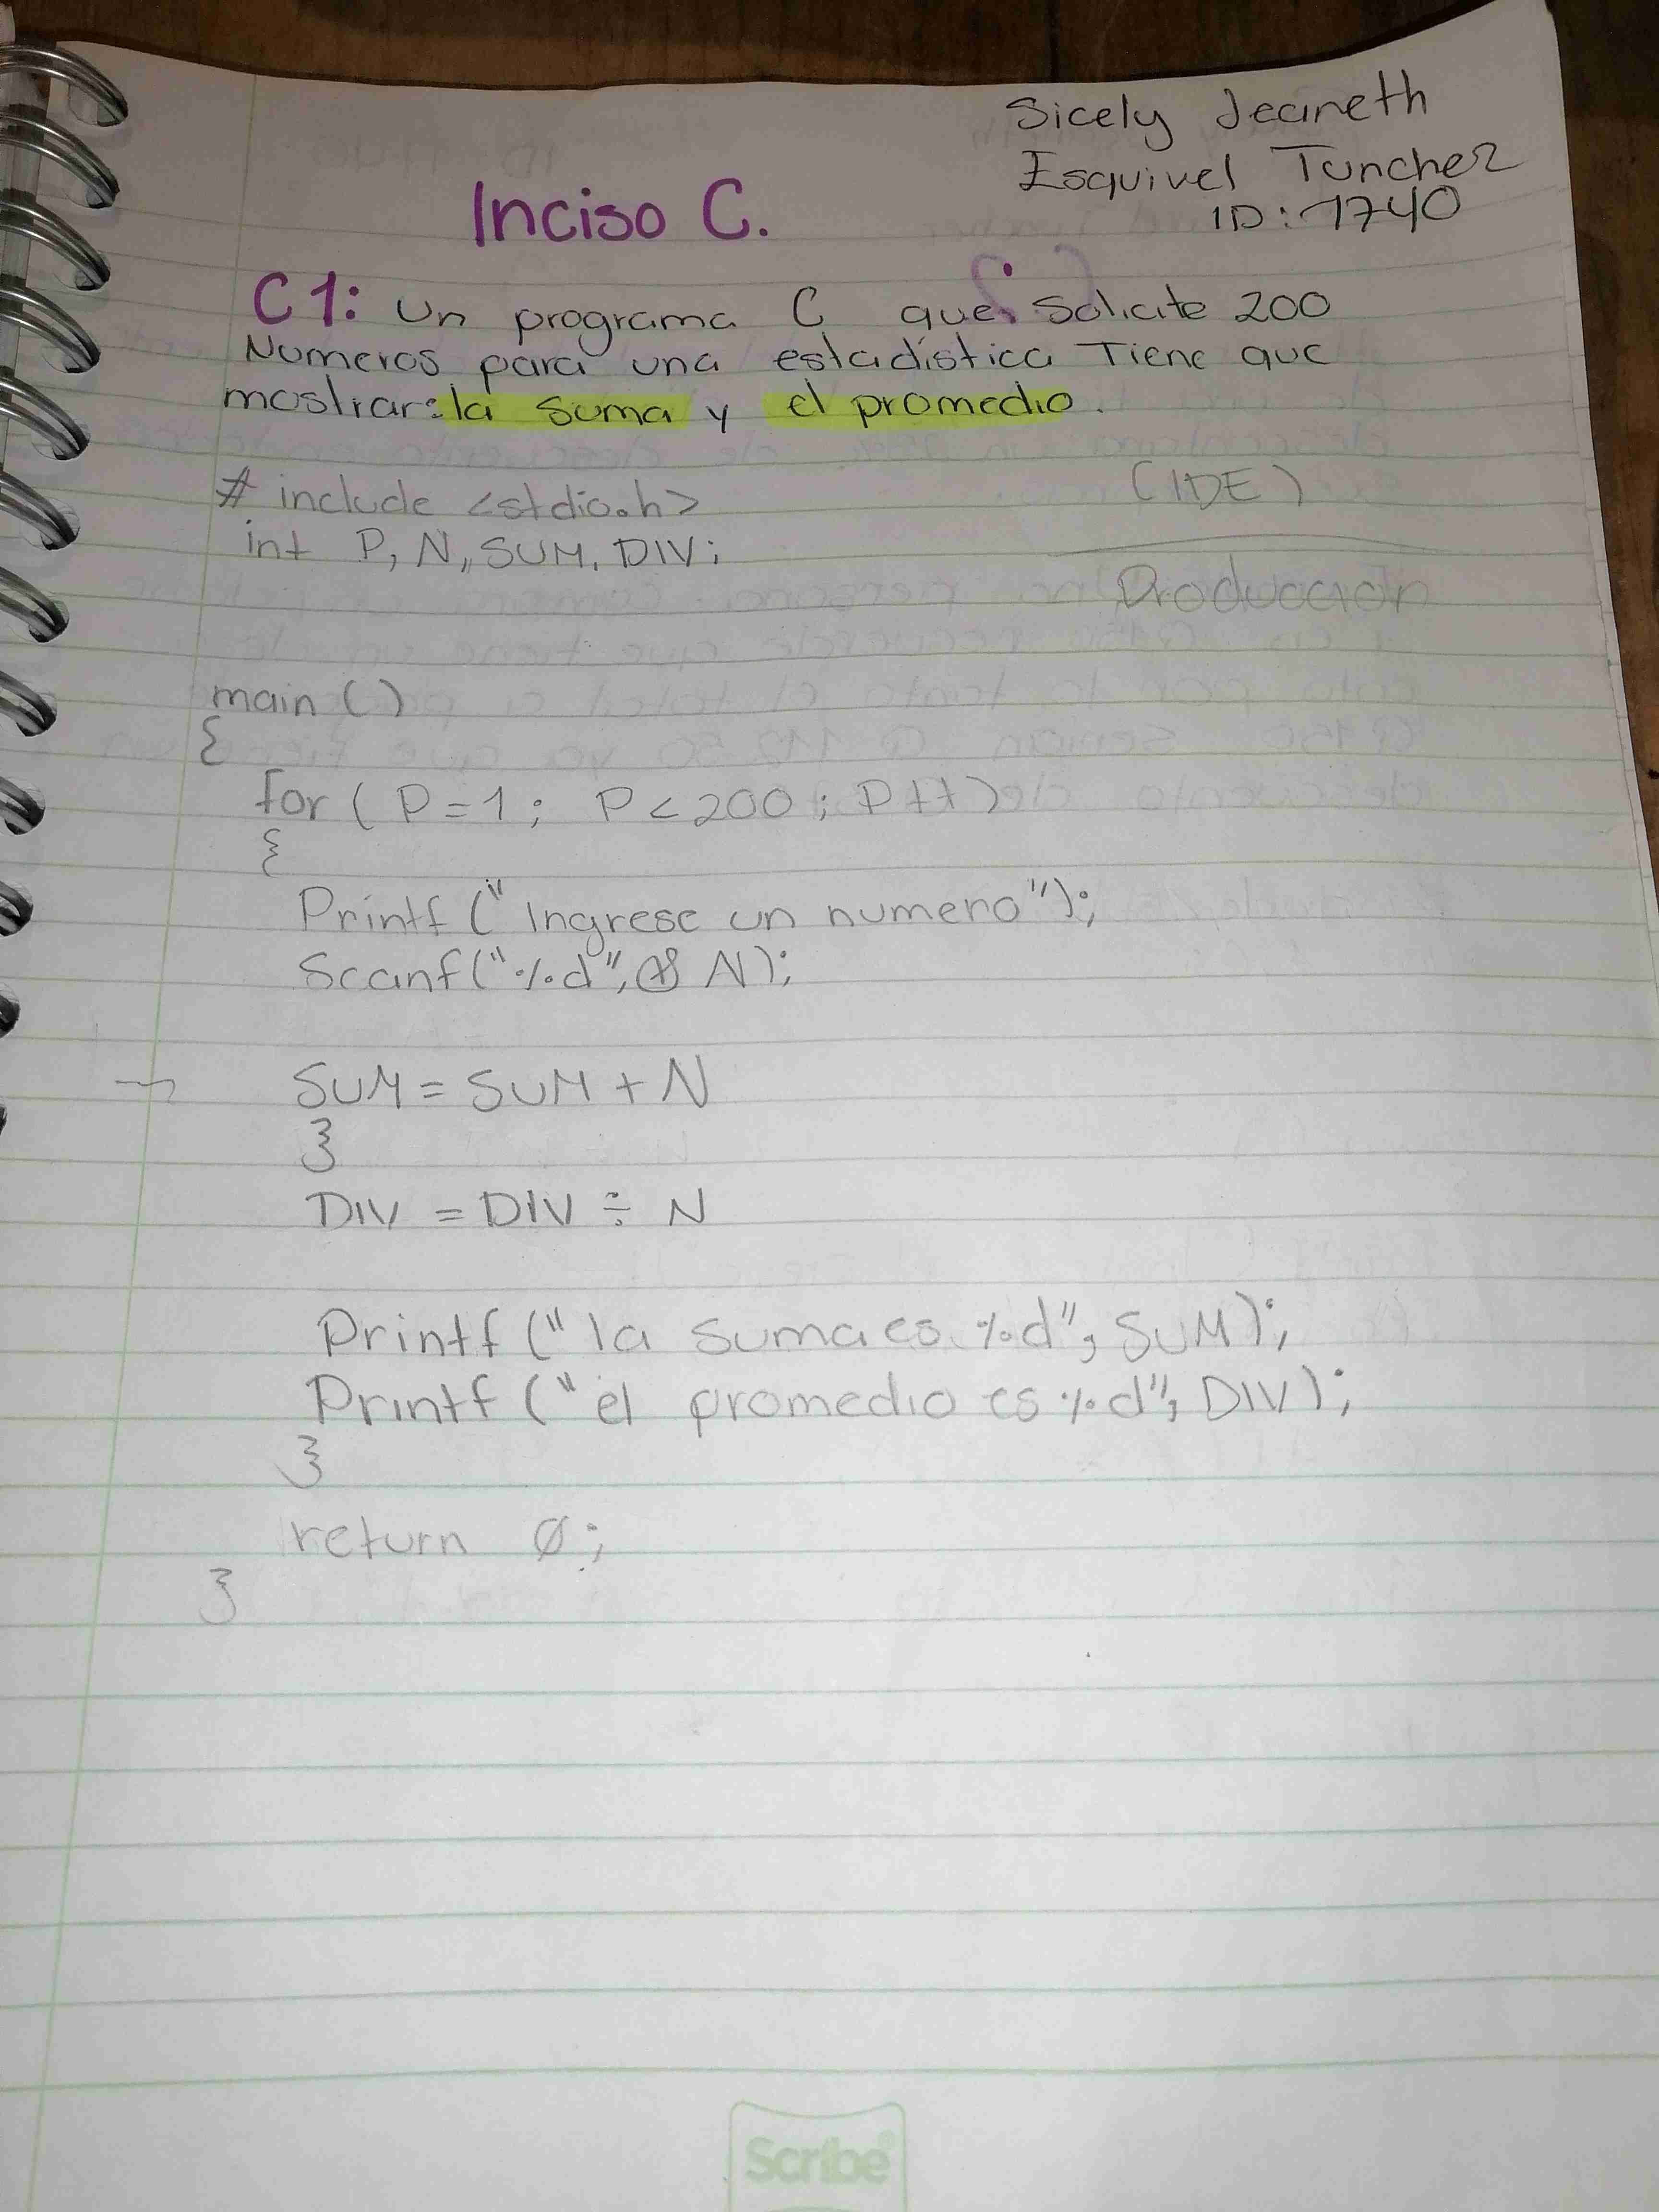 Sicely Jeaneth
Esquivel Tunchez
ID: 1740
Inciso C.
C1: Un programa C que solicite 200
Numeros para una estadística Tiene que
mostrar: la suma y el promedio.
# include <stdio.h>
(IDE)
int P, N, SUM, DIV;
Producción
main ()
{
for ( P=1; P<200; P++)
{
Printf ("Ingrese un numero");
Scanf("%d", & N);
SUM = SUM + N
}
DIV = DIV ÷ N
Printf ("la suma es %d", SUM);
Printf ("el promedio es %d", DIV);
}
return 0;
}
Scribe